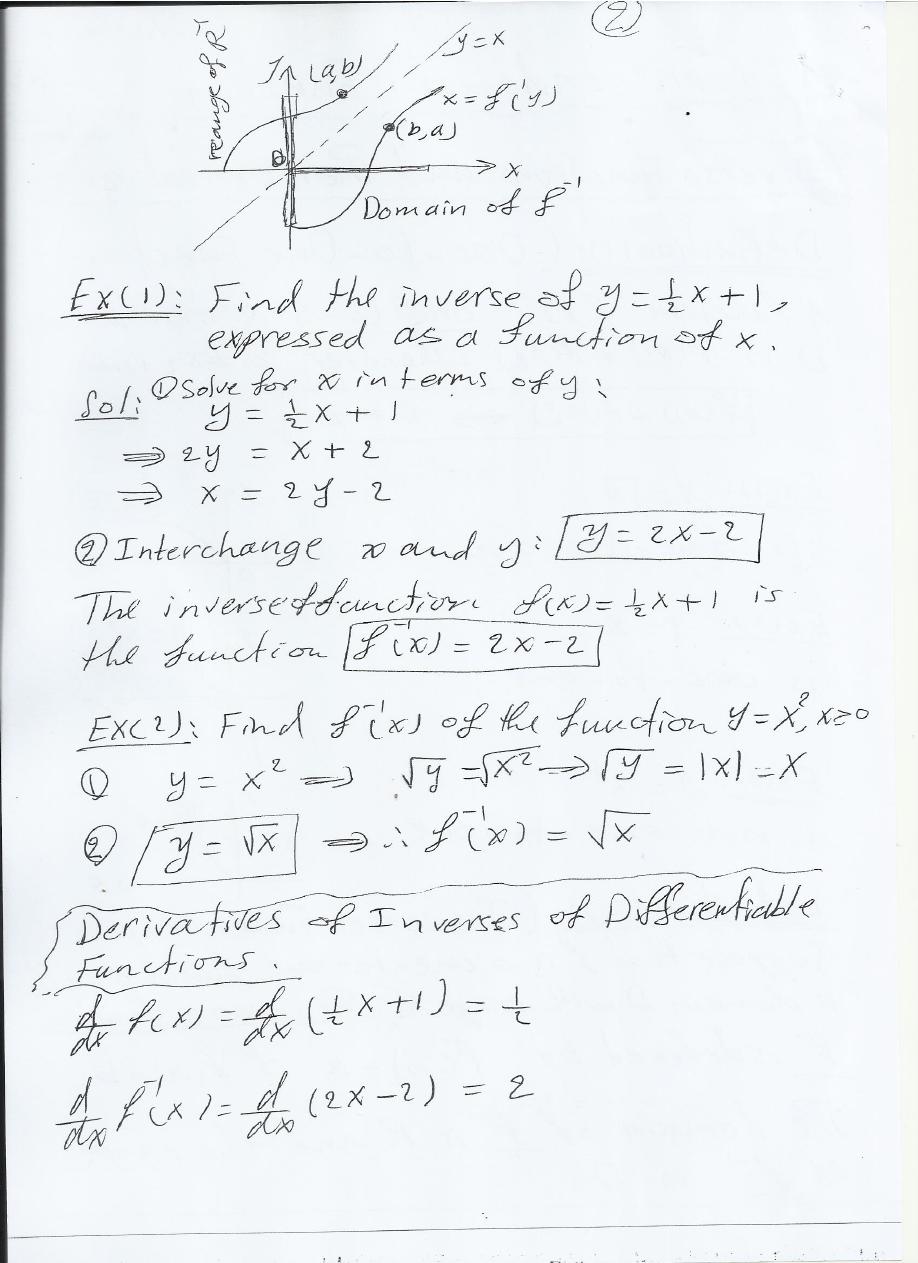 (2)
reange of R⁻¹
y
(a,b)
y=x
x = f⁻¹(y)
(b,a)
x
Domain of f⁻¹
Ex(1): Find the inverse of y = ½x + 1,
expressed as a function of x.
Sol: ① Solve for x in terms of y:
y = ½x + 1
⟹ 2y = x + 2
⟹ x = 2y - 2
② Interchange x and y: y = 2x - 2
The inverse of function f(x) = ½x + 1 is
the function f⁻¹(x) = 2x - 2
Ex(2): Find f⁻¹(x) of the function y = x², x≥0
① y = x² ⟹ √y = √x² ⟹ √y = |x| = x
② y = √x ⟹ ∴ f⁻¹(x) = √x
Derivatives of Inverses of Differentiable
Functions.
d/dx f(x) = d/dx (½x + 1) = ½
d/dx f⁻¹(x) = d/dx (2x - 2) = 2